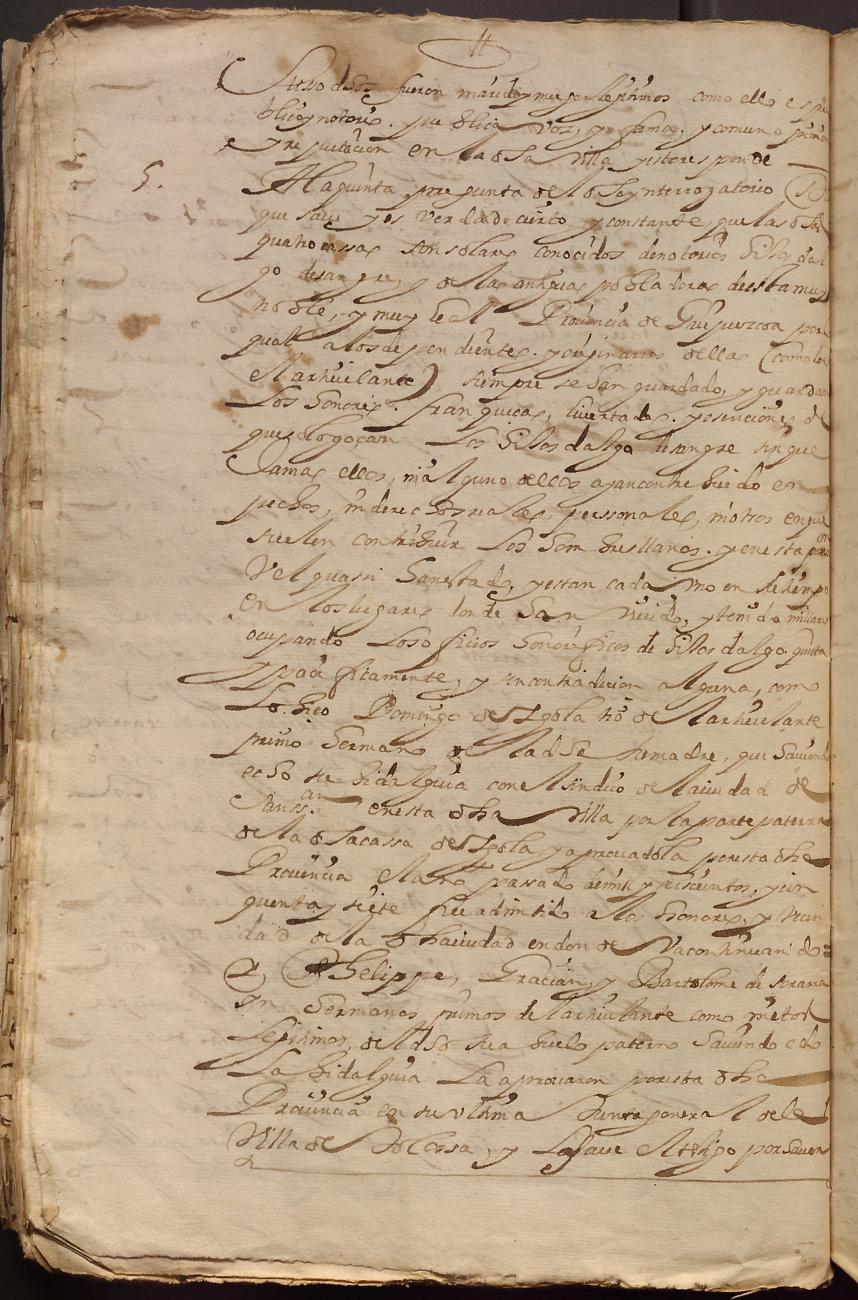 fueron marido y muger lexitimos como ello es pu
blico y notorio publica voz, y fama, y comun opinion
y reputacion en la dha Villa y esto responde
5. A la quinta pregunta del dho ynterrogatorio
que save y es verdad cierto y constante, que las dhas
quatro cassas son solares conocidos de notorios hijos dal
go de sangre, y de las antiguas pobladoras de esta muy
noble, y muy leal Provincia de Guipuzcoa por
qual a los dependientes y orijinarios dellas (como lo es
el articulante) siempre se han guardado, y guardan
los honores, franquezas, livertades y esenciones de
que gozan los hijos dalgo de sangre sin que
Jamas ellos, ni alguno dellos ayan contribuido en
pechos, ni derechos reales, personales, ni otros en que
suelen contribuir los hombres llanos y en esta posesion
Vel quassi han estado, y estan cada uno en su tiempo
en los lugares donde han vivido, y tenido millares
ocupando los oficios honorificos de hijos dalgo quieta
y pacificamente, y sin contradicion alguna, como
lo hizo Domingo de Igola tio del articulante
primo hermano de la dha su madre, que haviendo
echo su hidalguia con el sindico de la ciudad de
San ss.an en esta dha Villa por la parte paterna
de la dha cassa de Igola y aprovadola por esta dha
Provincia el año passado de mil y seiscientos, y cin
quenta y siete fue admitido a los honores, y vecin
dad de la dha ciudad en donde va continuando =
Y, Phelippe, Gracian, y Bartolome de Arana
In hermanos primos del articulante como nietos
lexitimos, del dho su abuelo paterno haviendo echo
la hidalguia la aprovaron por esta dha
Provincia en su ultima Junta general de la
Villa de Tolossa, y lo save el testigo por haver